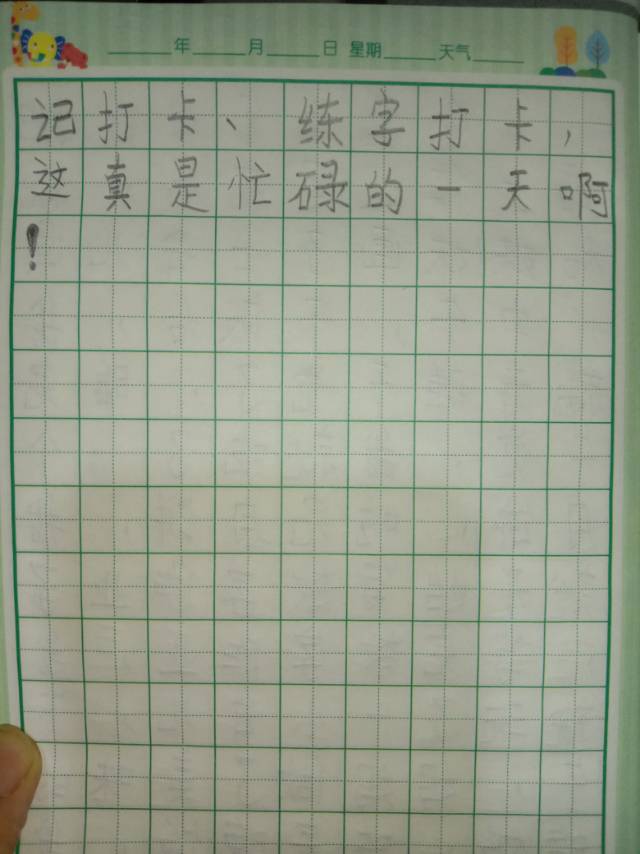 年 月 日 星期 天气
记打卡、练字打卡，
这真是忙碌的一天啊
！